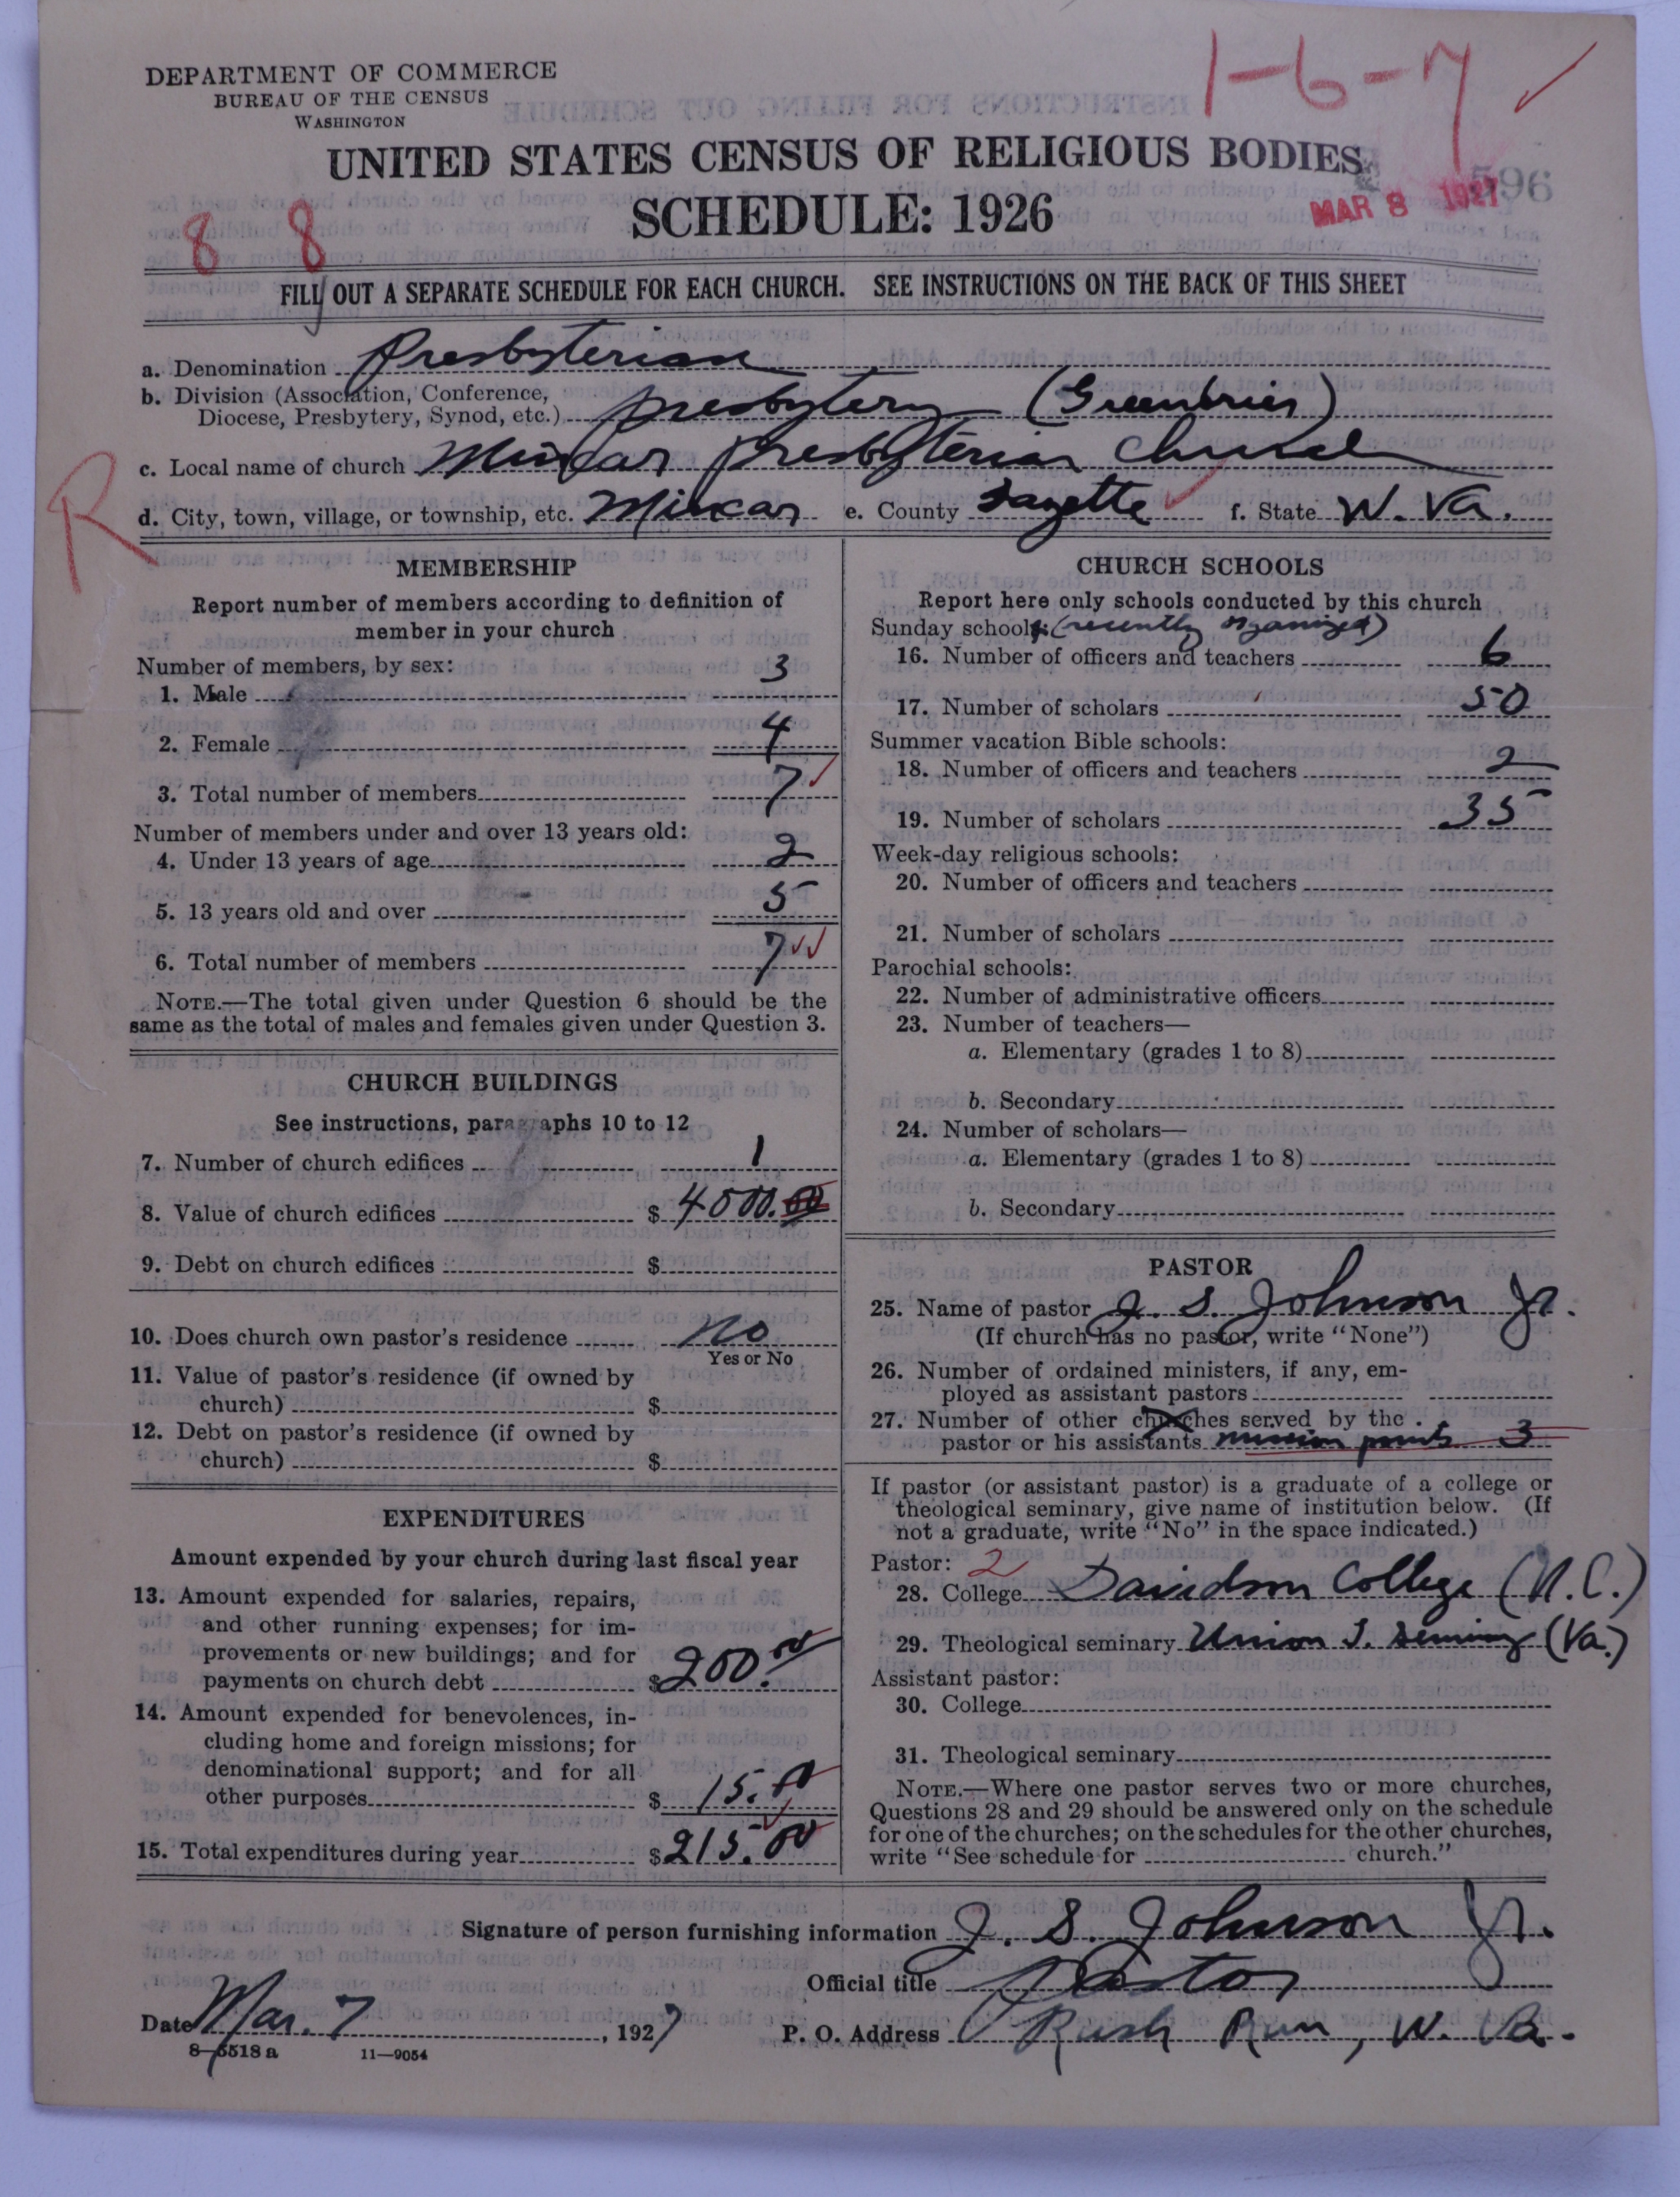 DEPARTMENT OF COMMERCE
BUREAU OF THE CENSUS
WASHINGTON
1-6-7
UNITED STATES CENSUS OF RELIGIOUS BODIES
SCHEDULE: 1926
MAR 8 1927
596
8 8
FILL OUT A SEPARATE SCHEDULE FOR EACH CHURCH. SEE INSTRUCTIONS ON THE BACK OF THIS SHEET
a. Denomination Presbyterian
b. Division (Association, Conference,
Diocese, Presbytery, Synod, etc.) Presbytery (Greenbrier)
c. Local name of church Mincar Presbyterian Church
R
d. City, town, village, or township, etc. Mincar e. County Fayette f. State W. Va.
MEMBERSHIP
Report number of members according to definition of
member in your church
Number of members, by sex:
1. Male 3
2. Female 4
3. Total number of members 7
Number of members under and over 13 years old:
4. Under 13 years of age 2
5. 13 years old and over 5
6. Total number of members 7
NOTE.—The total given under Question 6 should be the
same as the total of males and females given under Question 3.
CHURCH BUILDINGS
See instructions, paragraphs 10 to 12
7. Number of church edifices 1
8. Value of church edifices $ 4000.00
9. Debt on church edifices $
10. Does church own pastor's residence No
Yes or No
11. Value of pastor's residence (if owned by
church) $
12. Debt on pastor's residence (if owned by
church) $
EXPENDITURES
Amount expended by your church during last fiscal year
13. Amount expended for salaries, repairs,
and other running expenses; for im-
provements or new buildings; and for
payments on church debt $200.00
14. Amount expended for benevolences, in-
cluding home and foreign missions; for
denominational support; and for all
other purposes $ 15.00
15. Total expenditures during year $215.00
CHURCH SCHOOLS
Report here only schools conducted by this church
Sunday schools: (recently organized)
16. Number of officers and teachers 6
17. Number of scholars 50
Summer vacation Bible schools:
18. Number of officers and teachers 2
19. Number of scholars 35
Week-day religious schools:
20. Number of officers and teachers
21. Number of scholars
Parochial schools:
22. Number of administrative officers
23. Number of teachers—
a. Elementary (grades 1 to 8)
b. Secondary
24. Number of scholars—
a. Elementary (grades 1 to 8)
b. Secondary
PASTOR
25. Name of pastor J. S. Johnson Jr.
(If church has no pastor, write "None")
26. Number of ordained ministers, if any, em-
ployed as assistant pastors
27. Number of other churches served by the
pastor or his assistants mission points 3
If pastor (or assistant pastor) is a graduate of a college or
theological seminary, give name of institution below. (If
not a graduate, write "No" in the space indicated.)
Pastor: 2
28. College Davidson College (N.C.)
29. Theological seminary Union T. Seminary (Va.)
Assistant pastor:
30. College
31. Theological seminary
NOTE.—Where one pastor serves two or more churches,
Questions 28 and 29 should be answered only on the schedule
for one of the churches; on the schedules for the other churches,
write "See schedule for church."
Signature of person furnishing information J. S. Johnson Jr.
Official title Pastor
Date Mar. 7, 1927 P. O. Address Rush Run, W. Va.
8-5518 a 11—9054